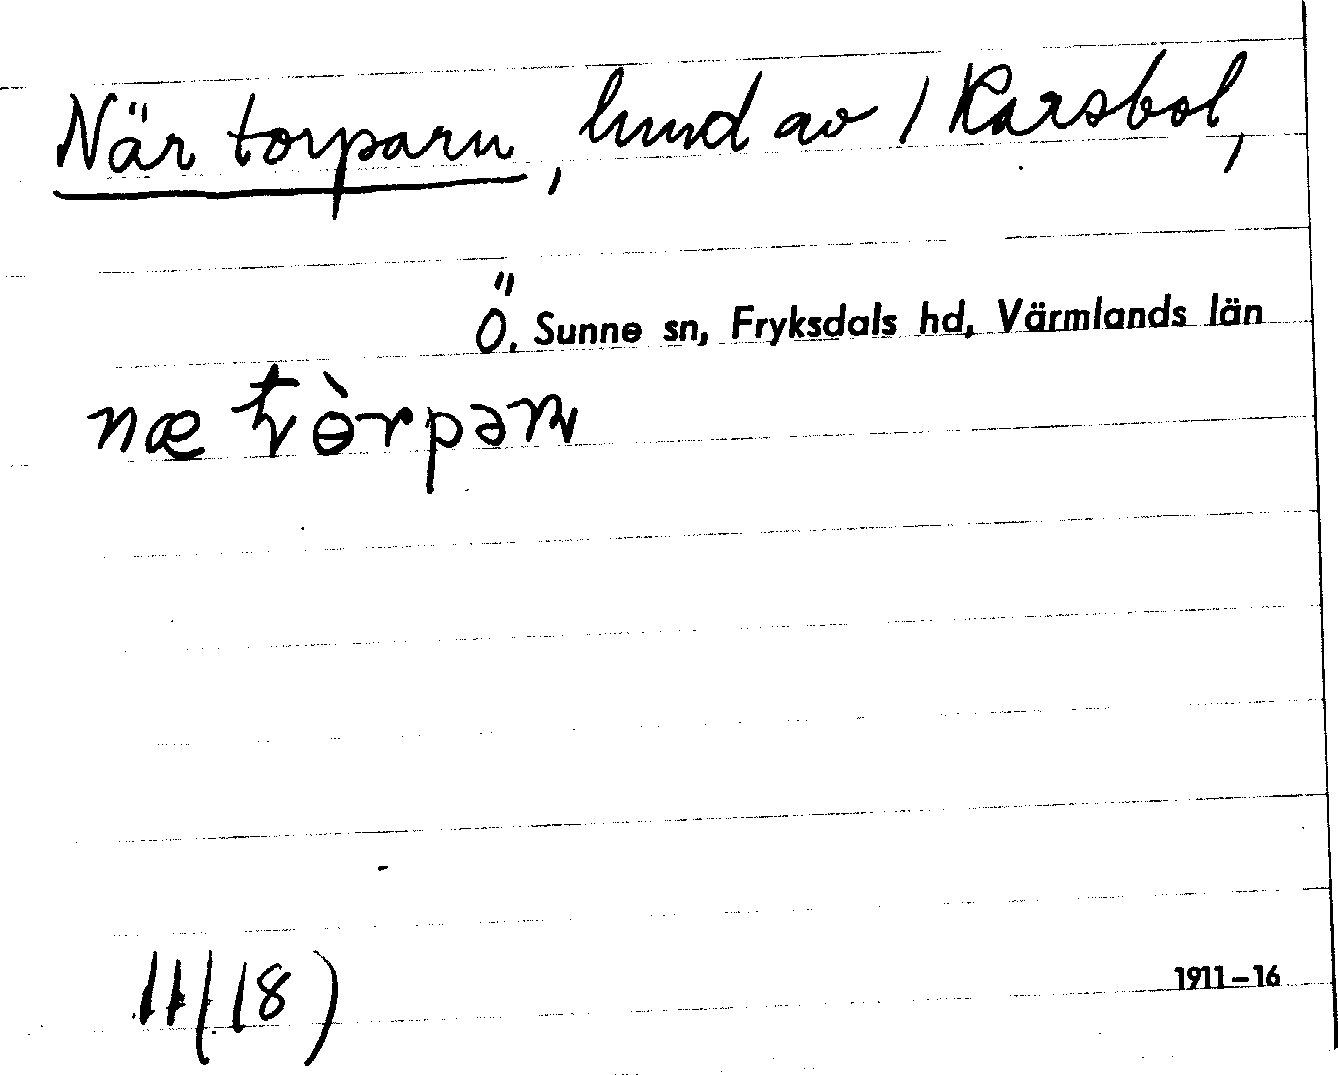 När torparn, lund av 1 Karsbol,
Ö. Sunne sn, Fryksdals hd, Värmlands län
næ
11/18)
1911–16